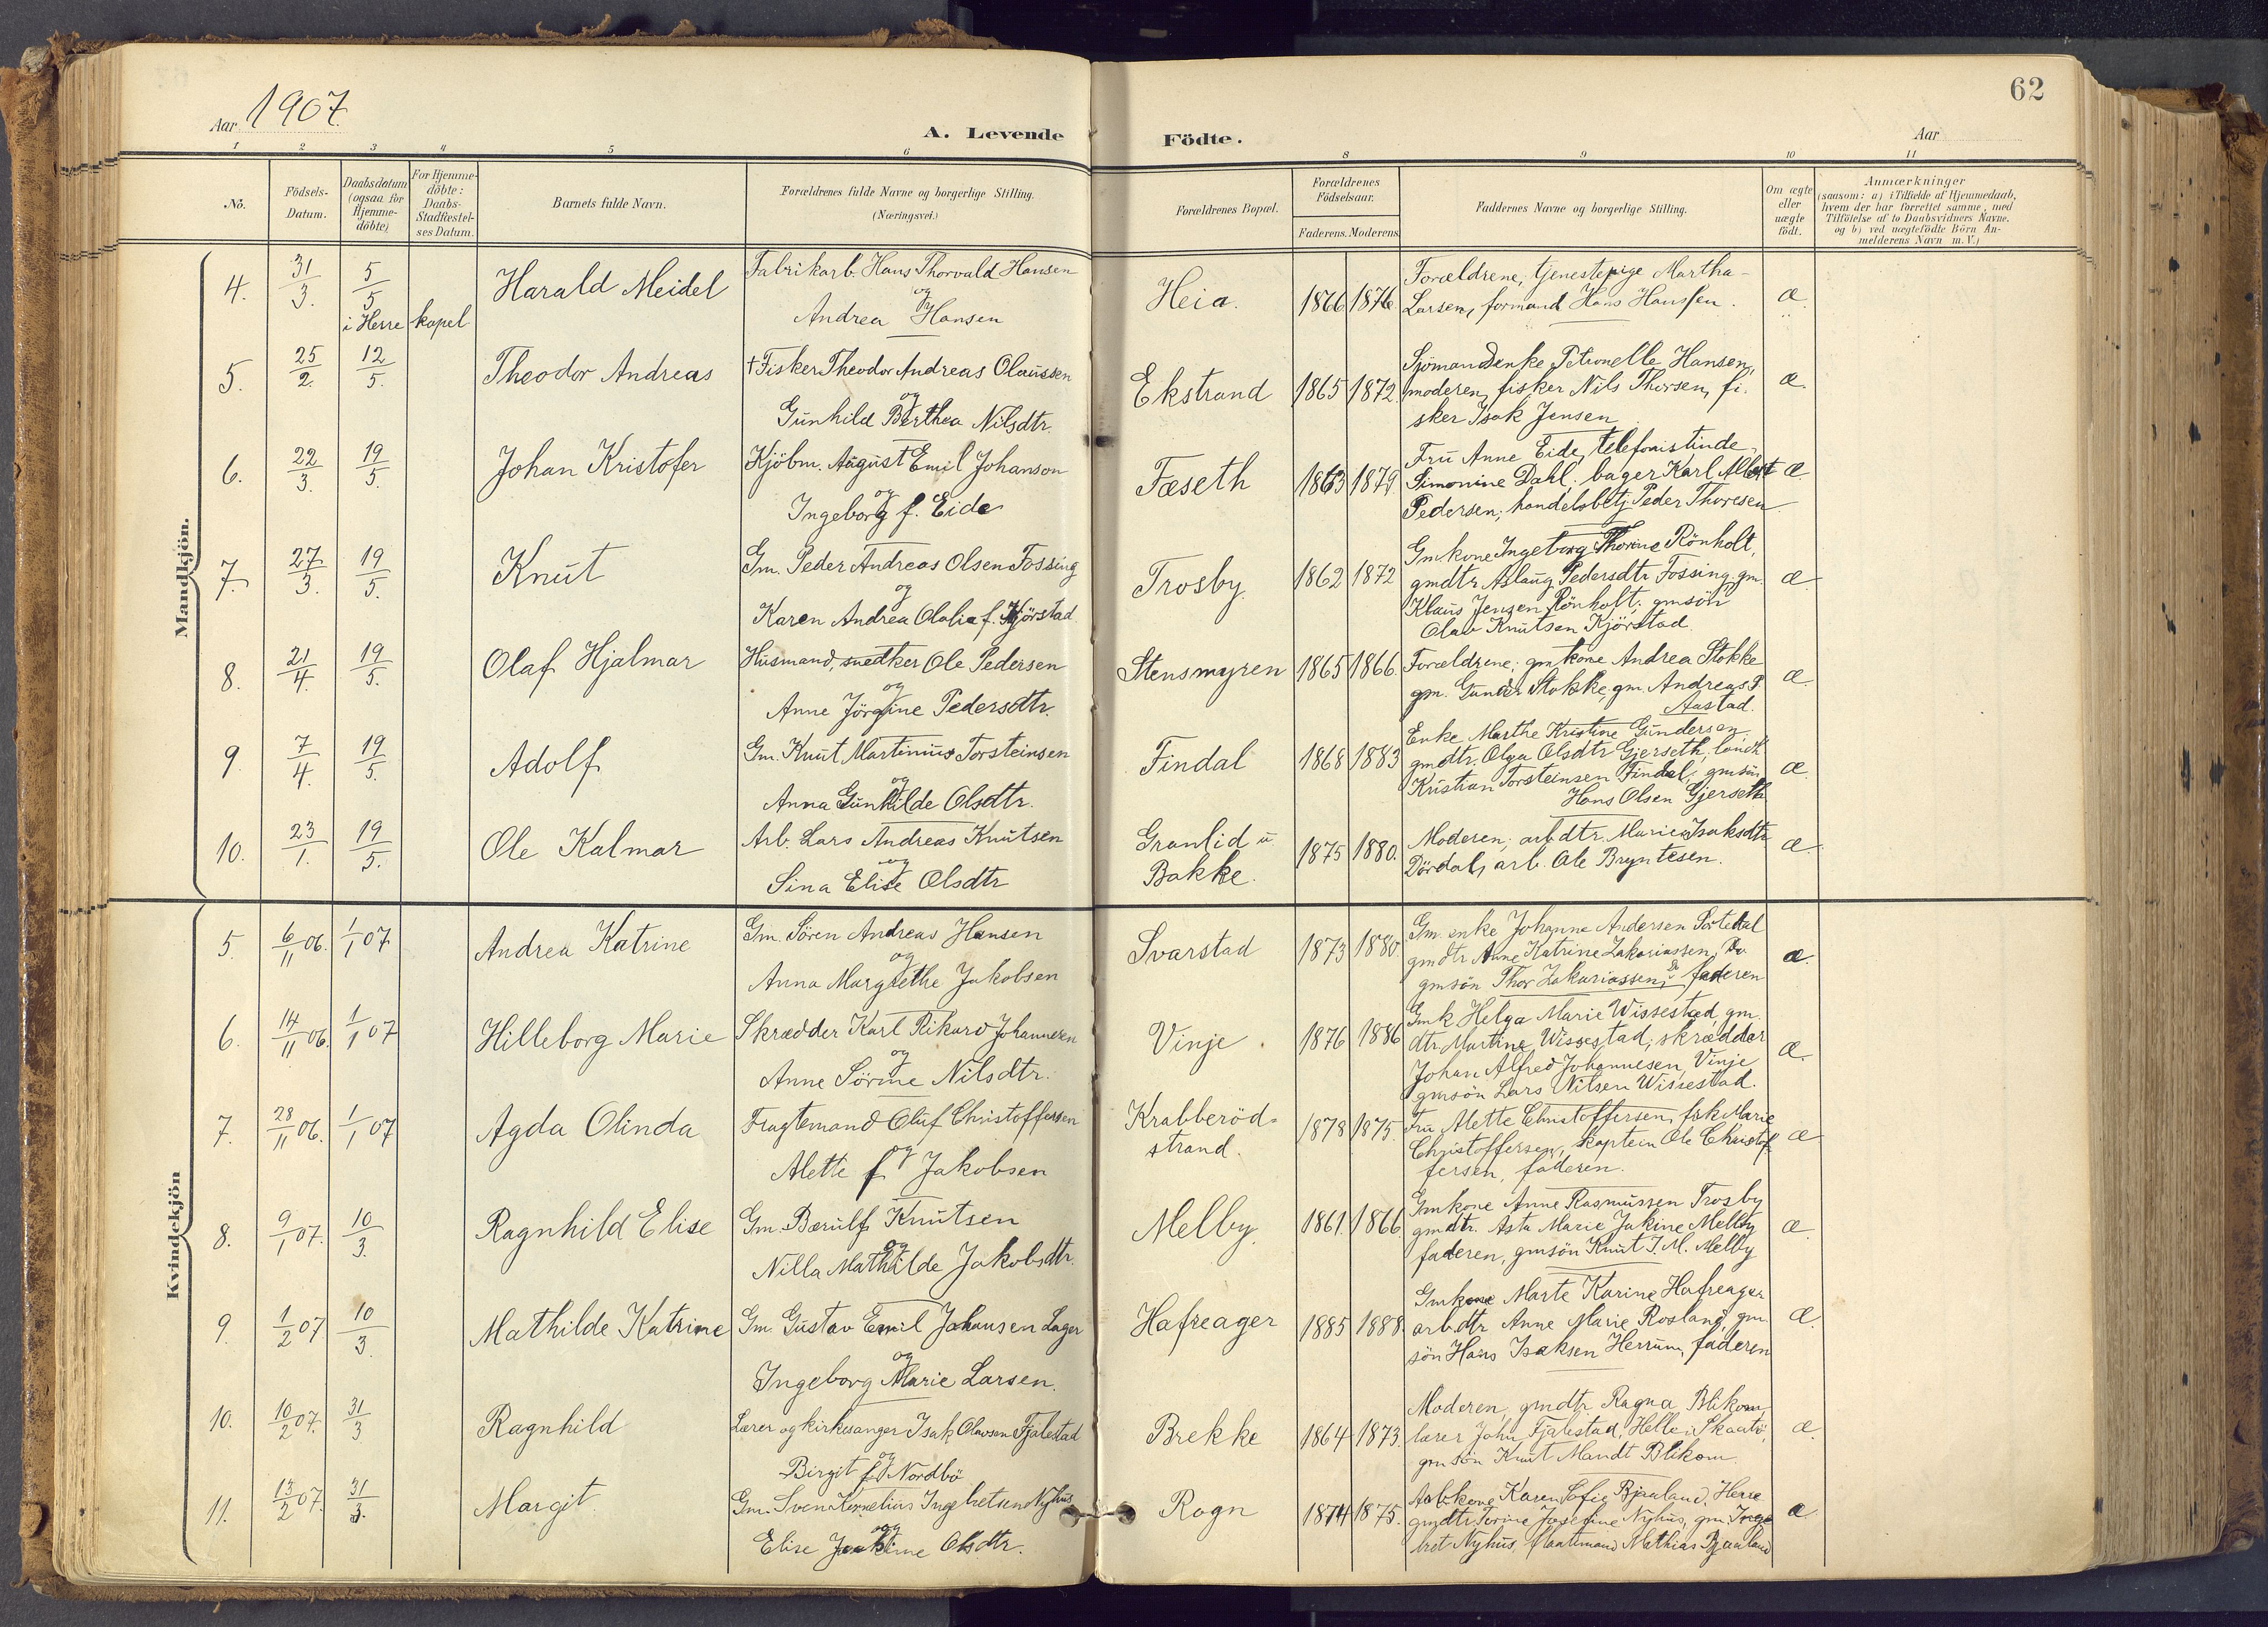 Aar 1907.
A. Levende Födte.
Aar
62
1 2 3 4 5 6 8 9 10 11
No.
Födsels-Datum.
Daabsdatum (ogsaa for Hjemme-döbte)
For Hjemme-döbte: Daabs-Stadfæstel-ses Datum.
Barnets fulde Navn.
Forældrenes fulde Navne og borgerlige Stilling.
(Næringsvei.)
Forældrenes Bopæl.
Forældrenes Födselsaar.
Faderens. Moderens.
Faddernes Navne og borgerlige Stilling.
Om ægte eller uægte födt.
Anmærkninger
(saasom: a) i Tilfælde af Hjemmedaab,
hvem der har forrettet samme, med
Tilföielse af to Daabsvidners Navne.
og b) ved uægtefödte Börn An-
melderens Navn m. V.)
Mandkjön.
4. 31/3. 5/5 i Herre kapel Harald Meidel
Fabrikarb. Hans Thorvald Hansen
og
Andrea Hansen
Heia. 1866. 1876.
Forældrene, tjenestepige Martha
Larsen, formand Hans Hanssen.
æ.
5. 25/2. 12/5. Theodor Andreas
†Fisker Theodor Andreas Olaussen
og
Gunhild Berthea Nilsdtr.
Ekstrand 1865 1872.
Sjömandsenke Petronelle Hansen,
moderen, fisker Nils Thorsen, fi-
sker Isak Jensen
æ.
6. 22/3. 19/5. Johan Kristofer
Kjöbm. August Emil Johanson
og
Ingeborg f. Eide
Fæseth 1863 1879
Fru Anne Eide, telefonistinde
Simonine Dahl; bager Karl Albert
Pedersen; handelsbetj. Peder Thoresen
æ.
7. 27/3. 19/5. Knut
Gm. Peder Andreas Olsen Fossing
og
Karen Andrea Olalia f. Kjörstad
Trosby. 1862 1872
Gmkone Ingeborg Thorine Rönholt,
gmdtr. Aslaug Pedersdtr Fossing; gm.
Klaus Jensen Rönholt; gmsön
Olav Knutsen Kjörstad.
æ.
8. 21/4. 19/5. Olaf Hjalmar
Husmand, snedker Ole Pedersen
og
Anne Jörgine Pedersdtr.
Stensmyren 1865 1866.
Forældrene; gmkone Andrea Stokke
gm. Gunder Stokke, gm. Andreas P.
Aastad.
æ.
9 7/4. 19/5. Adolf
Gm. Knut Martinius Torsteinsen
og
Anna Gunhilde Olsdtr.
Findal 1868 1883
Enke Marthe Kristine Gundersen
gmdtr. Olga Olsdtr Gjerseth; landh.
Kristian Torsteinsen Findal; gmsön
Hans Olsen Gjerseth
æ.
10. 23/1. 19/5. Ole Kalmar
Arb. Lars Andreas Knutsen
og
Sina Elise Olsdtr
Granlid u
Bakke. 1875 1880.
Moderen; arb.dtr. Marie Isaksdtr
Dördal, arb. Ole Bryntesen.
æ.
Kvindekjön
5. 6/11 06. 1/1 07 Andrea Katrine
Gm. Sören Andreas Hansen
og
Anna Margrethe Jakobsen
Svarstad 1873 1880.
Gm. enke Johanne Andersen
gmdtr Anne Katrine Zakariassen, Do
gmsön Thor Zakariassen, Do faderen
æ.
6. 14/11 06. 1/1 07 Hilleborg Marie
Skrædder Karl Rikard Johannesen
og
Anne Sörine Nilsdtr.
Vinje. 1876 1886
Gmk Helga Marie Wissestad, gm.
dtr. Martine Wissestad; skrædder
Johan Alfred Johannesen, Vinje
gmsön Lars Nilsen Wissestad.
æ.
7. 28/11 06. 1/1 07 Agda Olinda
Fragtemand Oluf Christoffersen
og
Alette f. Jakobsen
Krabberöd-
strand. 1878 1875.
Fru Alette Christoffersen, frk Marie
Christoffersen, kaptein Ole Christof-
fersen, faderen.
æ
8. 9/1 07. 10/3. Ragnhild Elise
Gm. Bærulf Knutsen
og
Nilla Mathilde Jakobsdtr.
Melby. 1861. 1866
Gmkone Anne Rasmussen Trosby
gmdtr. Asta Marie Jakine Melby
faderen, gmsön Knut J. M. Melby
æ.
9. 1/2 07 10/3. Mathilde Katrine
Gm. Gustav Emil Johansen Lager
og
Ingeborg Marie Larsen.
Hafreager 1885 1888.
Gmkone Marte Karine Hafreager
arb.dtr Anne Marie Rosland, gm.
sön Hans Isaksen Herrum, faderen
æ.
10. 10/2 07. 31/3 Ragnhild
Lærer og kirkesanger Isak Olavsen Fjalestad
og
Birgit f. Nordbö
Brekke 1864 1873.
Moderen, gmdtr Ragna Blikom,
lærer John Fjalestad, Helle i Skaatö,
gmsön Knut Mandt Blikom.
æ.
11. 13/2 07. 31/3. Margit.
Gm. Sven Kornelius Ingebretsen Nyhus
og
Elise Joakime Olsdtr.
Rogn 1874 1875.
Arb.kone Karen Sofie Bjauland, Herre
gmdtr. Josefine Nyhus, gm. Inge-
bret Nyhus, Mathias Bjauland
æ